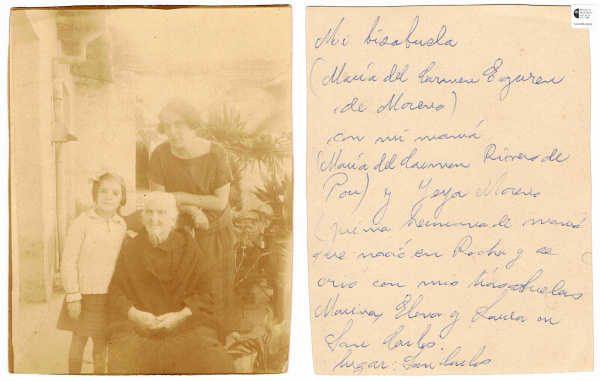 Mi bisabuela
(María del Carmen Eguren
de Moreno)
con mi mamá
(María del Carmen Rivera de
Pou) y Yeya Moreno
(prima hermana de mamá
que nació en Rocha y se
crió con mis tías abuelas
Marina, Elena y Laura en
San Carlos.
lugar: San Carlos